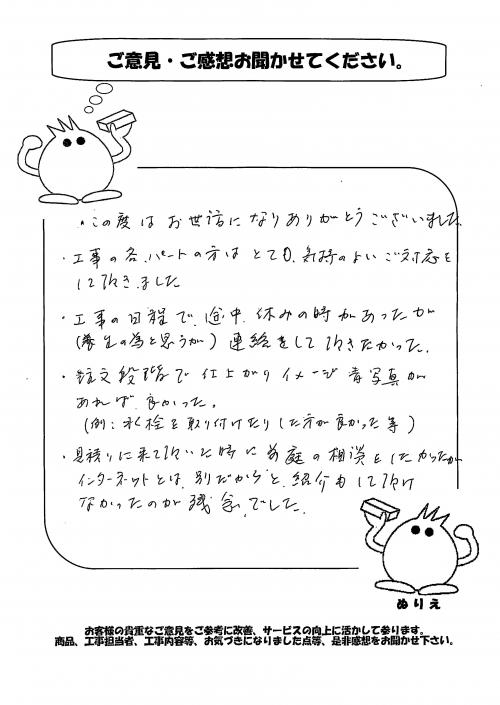 ご意見・ご感想お聞かせてください。
・この度は お世話に なりありがとうございました
・工事の各.パートの方は とても、気持のよい ご対応を
して頂きました
・工事の日程で、途中、休みの時があったが
(養生の為と思うが) 連絡をして頂きたかった。
・注文段階で 仕上がり イメージ 青写真が
あれば 良かった。
(例:水栓を取り付けたりした方が良かった 等)
・見積りに来て頂いた時に お庭の相談をしたかったが
インターネットとは、別だからと、紹介もして頂け
なかったのが 残念、でした。
ぬりえ
お客様の貴重なご意見をご参考に改善、サービスの向上に活かして参ります。
商品、工事担当者、工事内容等、お気づきになりました点等、是非感想をお聞かせ下さい。